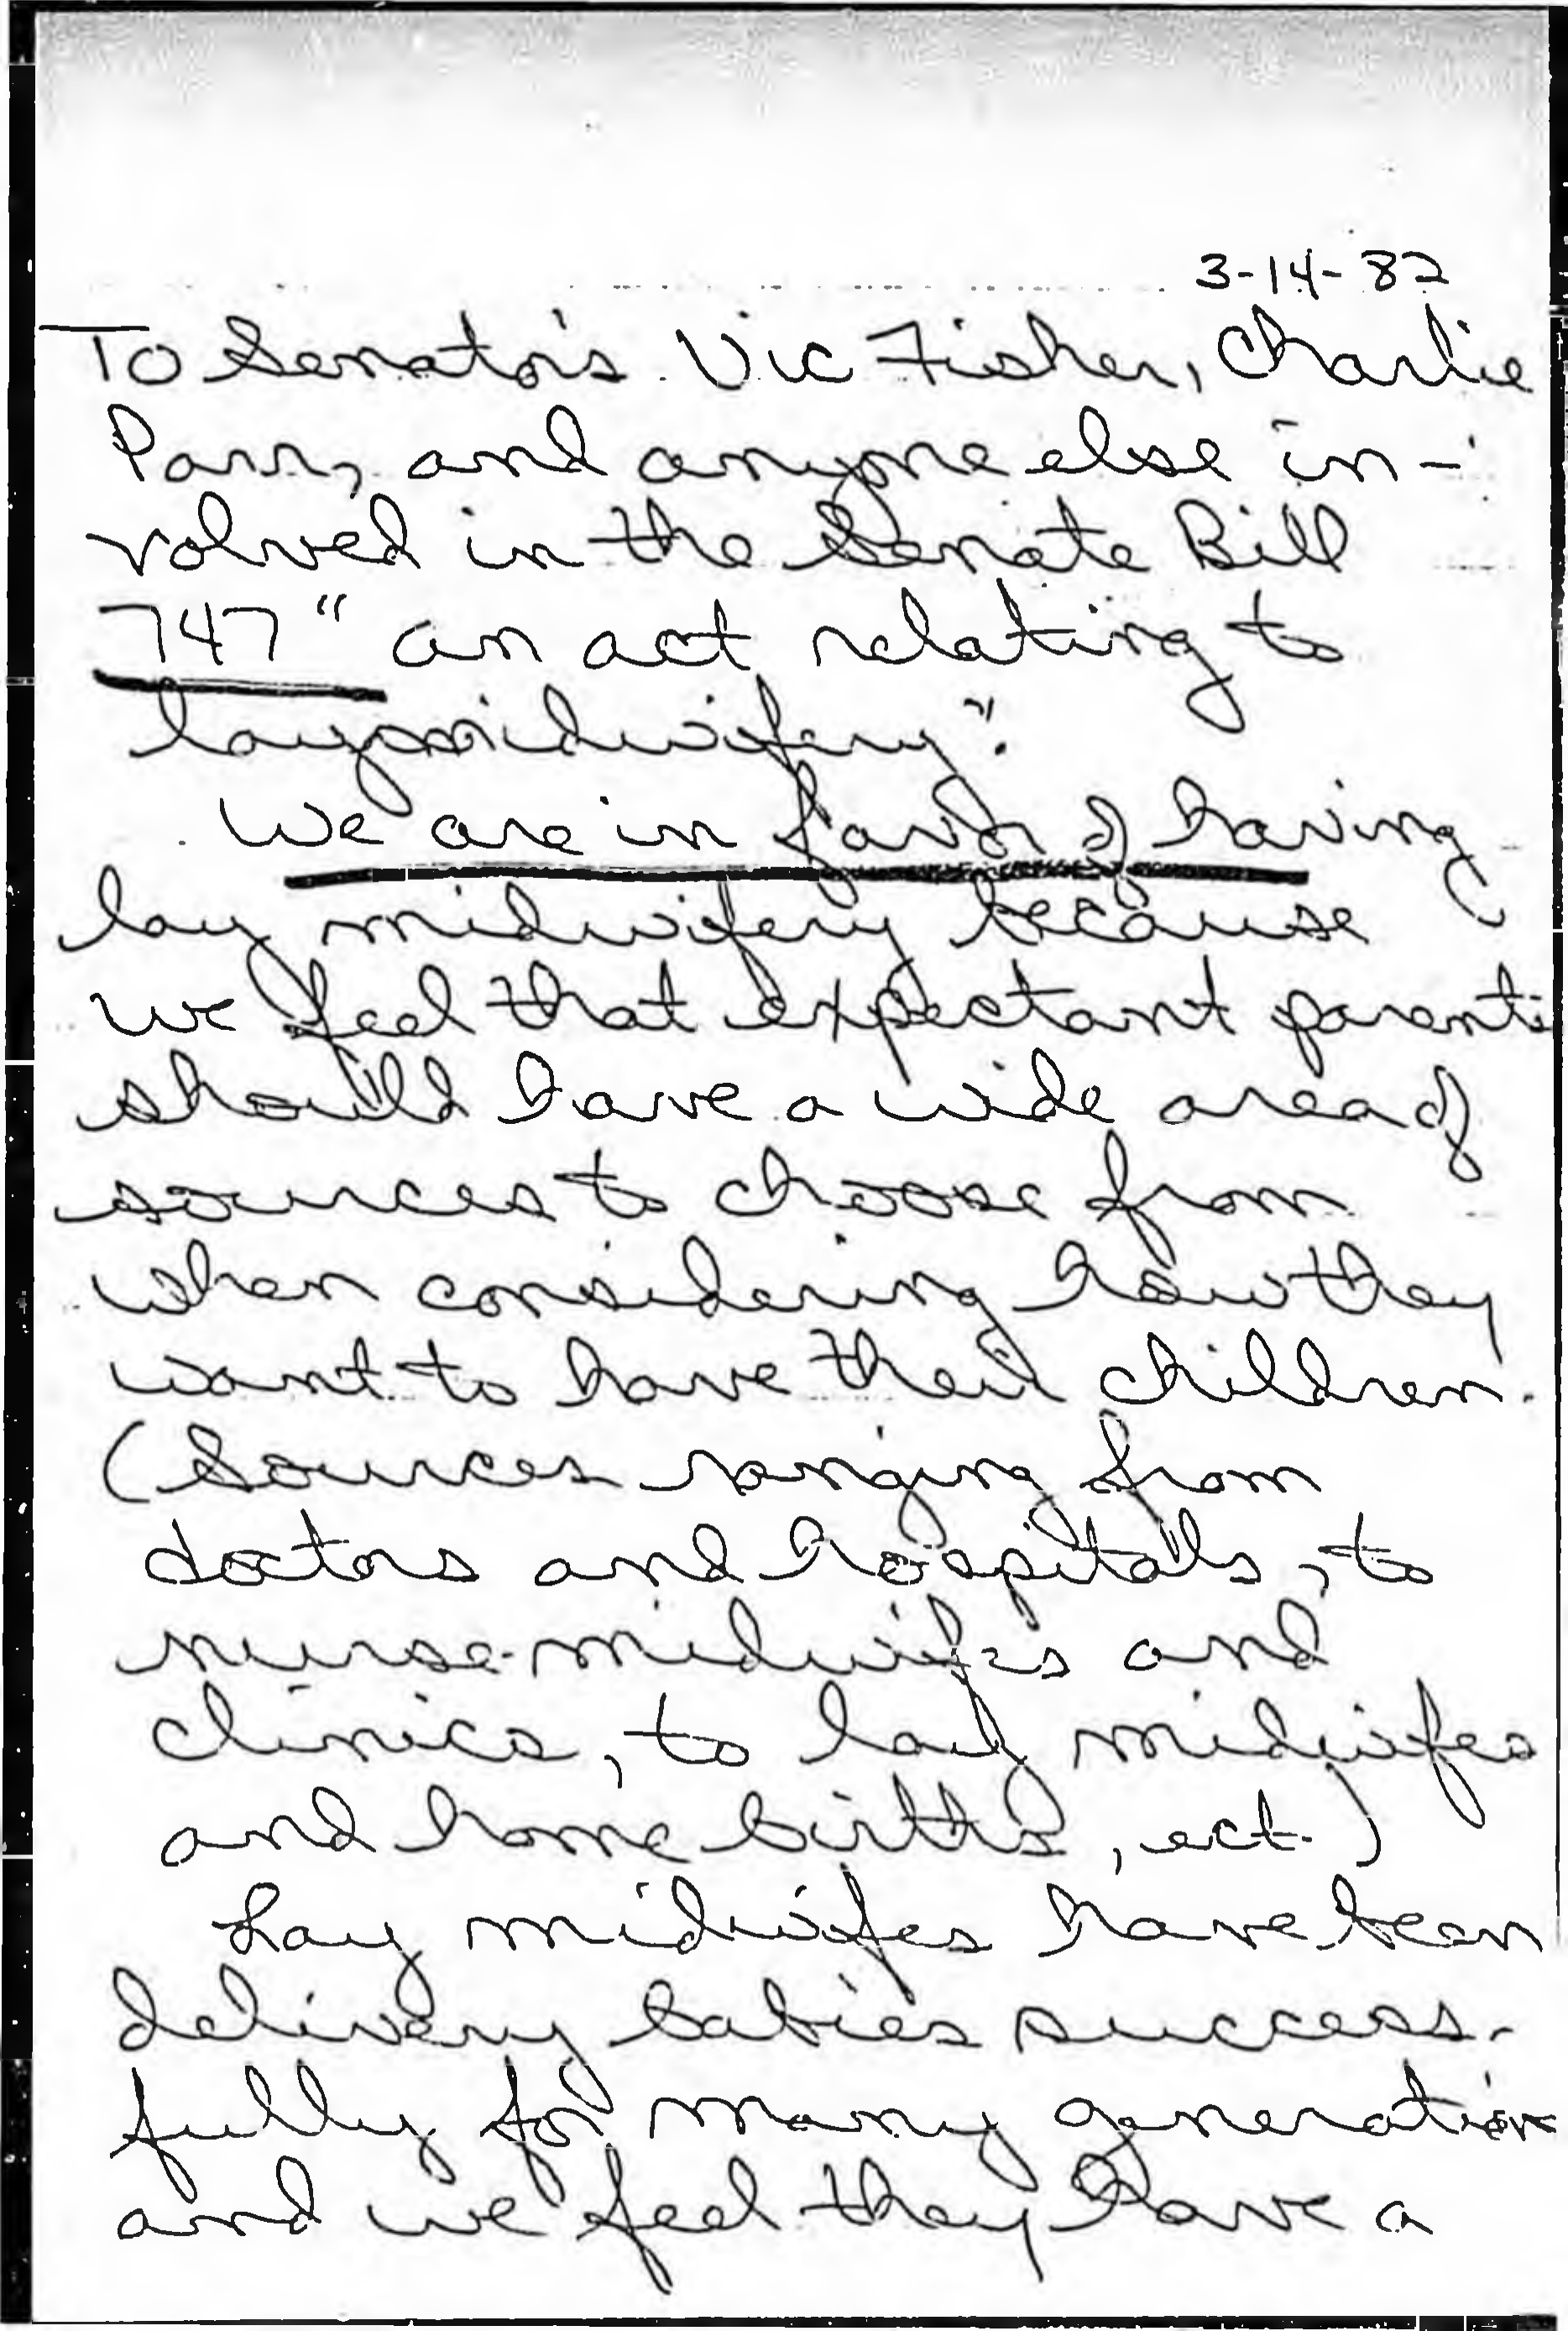 3-14-82
To Senator's Vic Fisher, Charlie
Parr, and anyone else in-
volved in the Senate Bill
747 "an act relating to
lay midwifery".
We are in favor of having
lay midwifery because
we feel that expectant parents
should have a wide area of
sources to choose from
when considering how they
want to have their children.
(Sources ranging from
doctors and hospitals, to
nurse-midwifes and
clinics, to lay midwifes
and home births, ect.)
Lay midwifes have been
delivery babies success-
fully for many generations
and we feel they have a